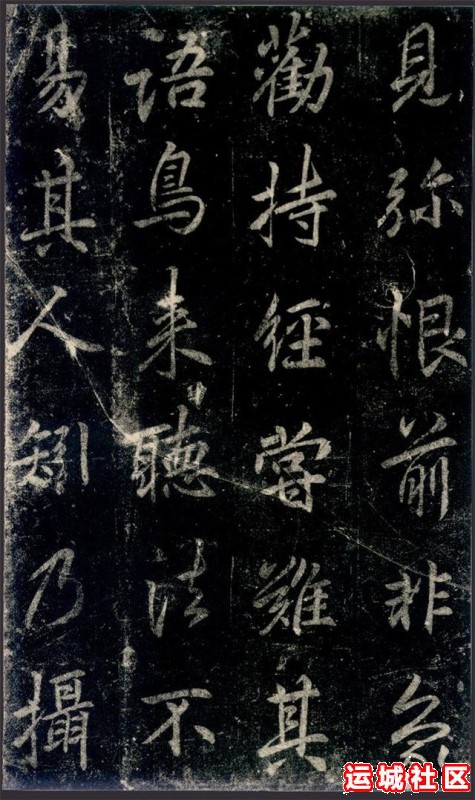 見弥恨前非
勸持經嘗難其
語鳥来聽法不
易其人矧乃攝
运城社区